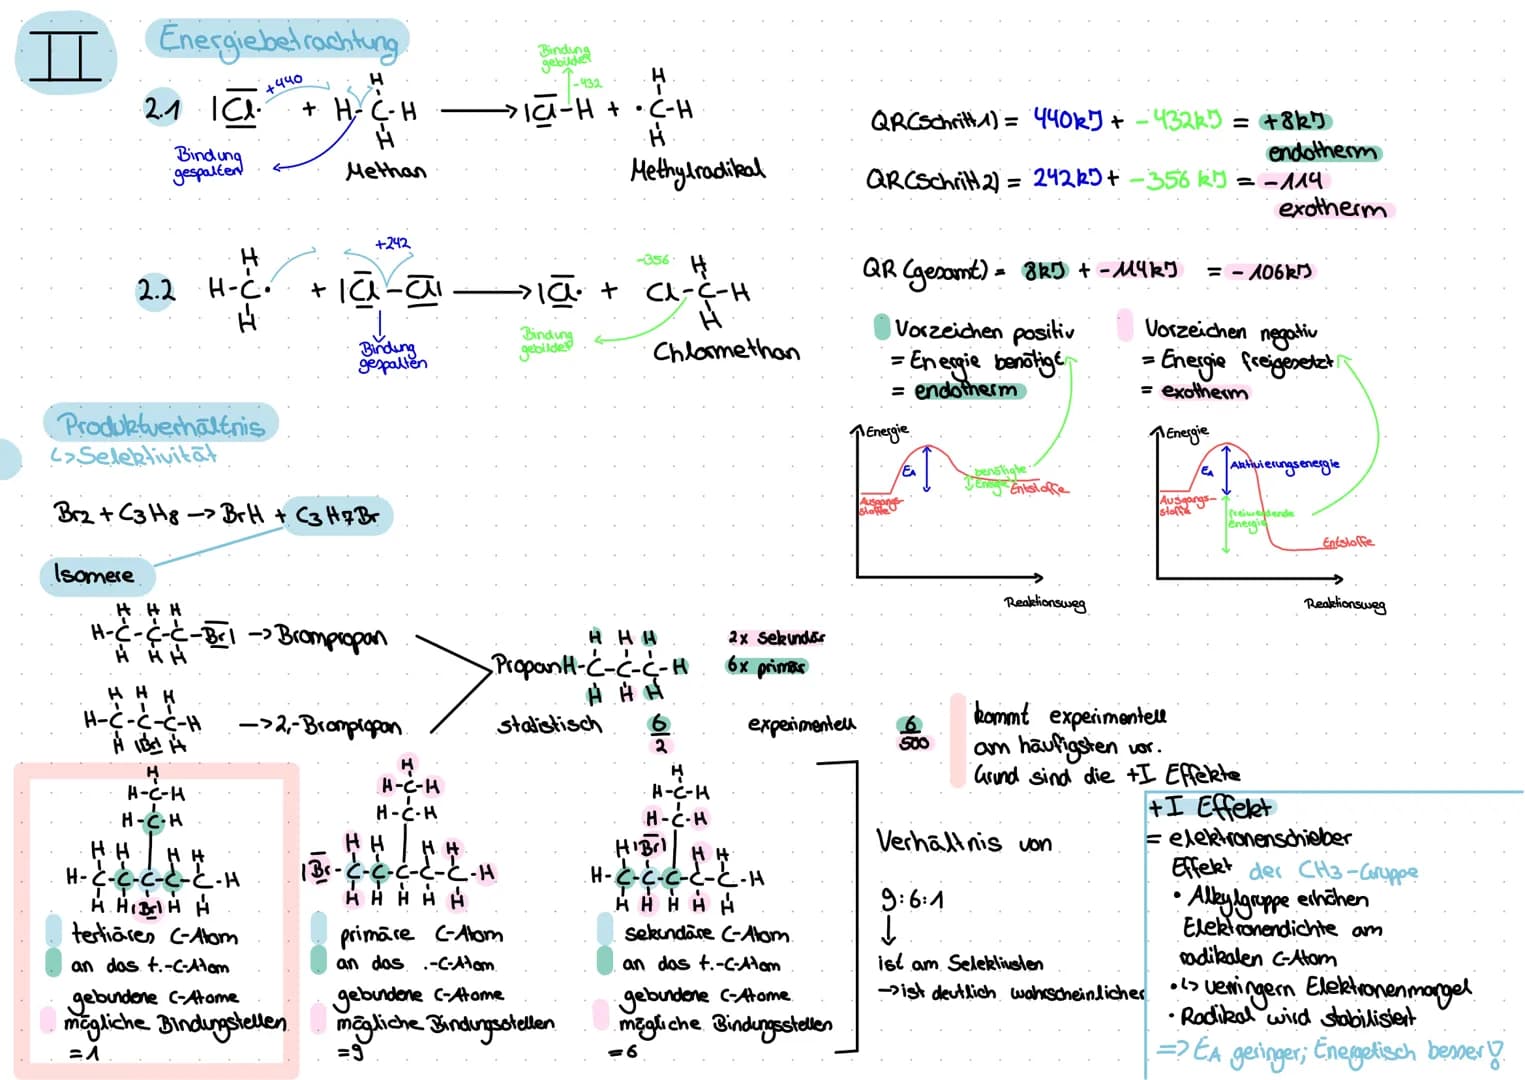 II
Energiebetrachtung
2.1 |Cl· + H-C-H → |Cl-H + ·C-H
+440
Bindung gebildet
-432
Bindung gespalten
Methan
Methylradikal
QR(Schritt 1) = 440kJ + -432kJ = +8kJ
endotherm
QR(Schritt 2) = 242kJ + -356 kJ = -114
exotherm
2.2 H-C· + |Cl-Cl| → |Cl· + Cl-C-H
+242
-356
Bindung gespalten
Bindung gebildet
Chlormethan
QR (gesamt) = 8kJ + -114kJ = -106kJ
Vorzeichen positiv
= Energie benötigt
= endotherm
Vorzeichen negativ
= Energie freigesetzt
= exotherm
Energie
EA
benötigte
Energie
Ausgangs-
stoffe
Entstoffe
Reaktionsweg
Energie
EA
Aktivierungsenergie
Ausgangs-
stoffe
freiwerdende
Energie
Entstoffe
Reaktionsweg
Produktverhältnis
↳Selektivität
Br2 + C3H8 → BrH + C3H7Br
Isomere
H-C-C-C-Br| → Brompropan
H-C-C-C-H → 2,-Brompropan
Propan H-C-C-C-H
2x sekundär
6x primär
statistisch 6/2
experimentell 6/500
kommt experimentell
am häufigsten vor.
Grund sind die +I Effekte
H-C-H
H-C-H
H-C-C-C-C-C-H
|Br|
tertiäres C-Atom
an das t.-C-Atom
gebundene C-Atome
mögliche Bindungstellen
= 1
H-C-H
H-C-H
|Br-C-C-C-C-C-H
primäre C-Atom
an das .-C-Atom
gebundene C-Atome
mögliche Bindungsstellen
=9
H-C-H
H-C-H
H|Br|
H-C-C-C-C-C-H
sekundäre C-Atom
an das t.-C-Atom
gebundene C-Atome
mögliche Bindungsstellen
=6
Verhältnis von
9:6:1
↓
ist am Selektivsten
→ist deutlich wahrscheinlicher
+I Effekt
= elektronenschieber
Effekt der CH3-Gruppe
• Alkylgruppe erhöhen
Elektronendichte am
radikalen C-Atom
•↳ verringern Elektronenmangel
• Radikal wird stabilisiert
=> EA geringer; Energetisch besser!